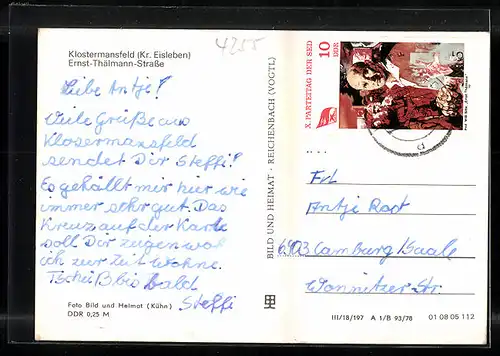 Klostermansfeld (Kr. Eisleben)
Ernst-Thälmann-Straße
4255
Liebe Antje!
Viele Grüße aus
Klosermansfeld
sendet Dir Steffi!
Es gehällt mir hur wie
immer sehr gut. Das
Kreuz auf der Karte
soll Dir zeigen wo
ich zur Zeit wohne.
Tscheiß bis bald
Steffi
Foto Bild und Heimat (Kühn)
DDR 0,25 M
BILD UND HEIMAT · REICHENBACH (VOGTL)
X. PARTEITAG DER SED
10
DDR
Frl
Antje
6903 Camburg/Saale
Wonnitzer Str.
III/18/197 A 1/B 93/78 01 08 05 112